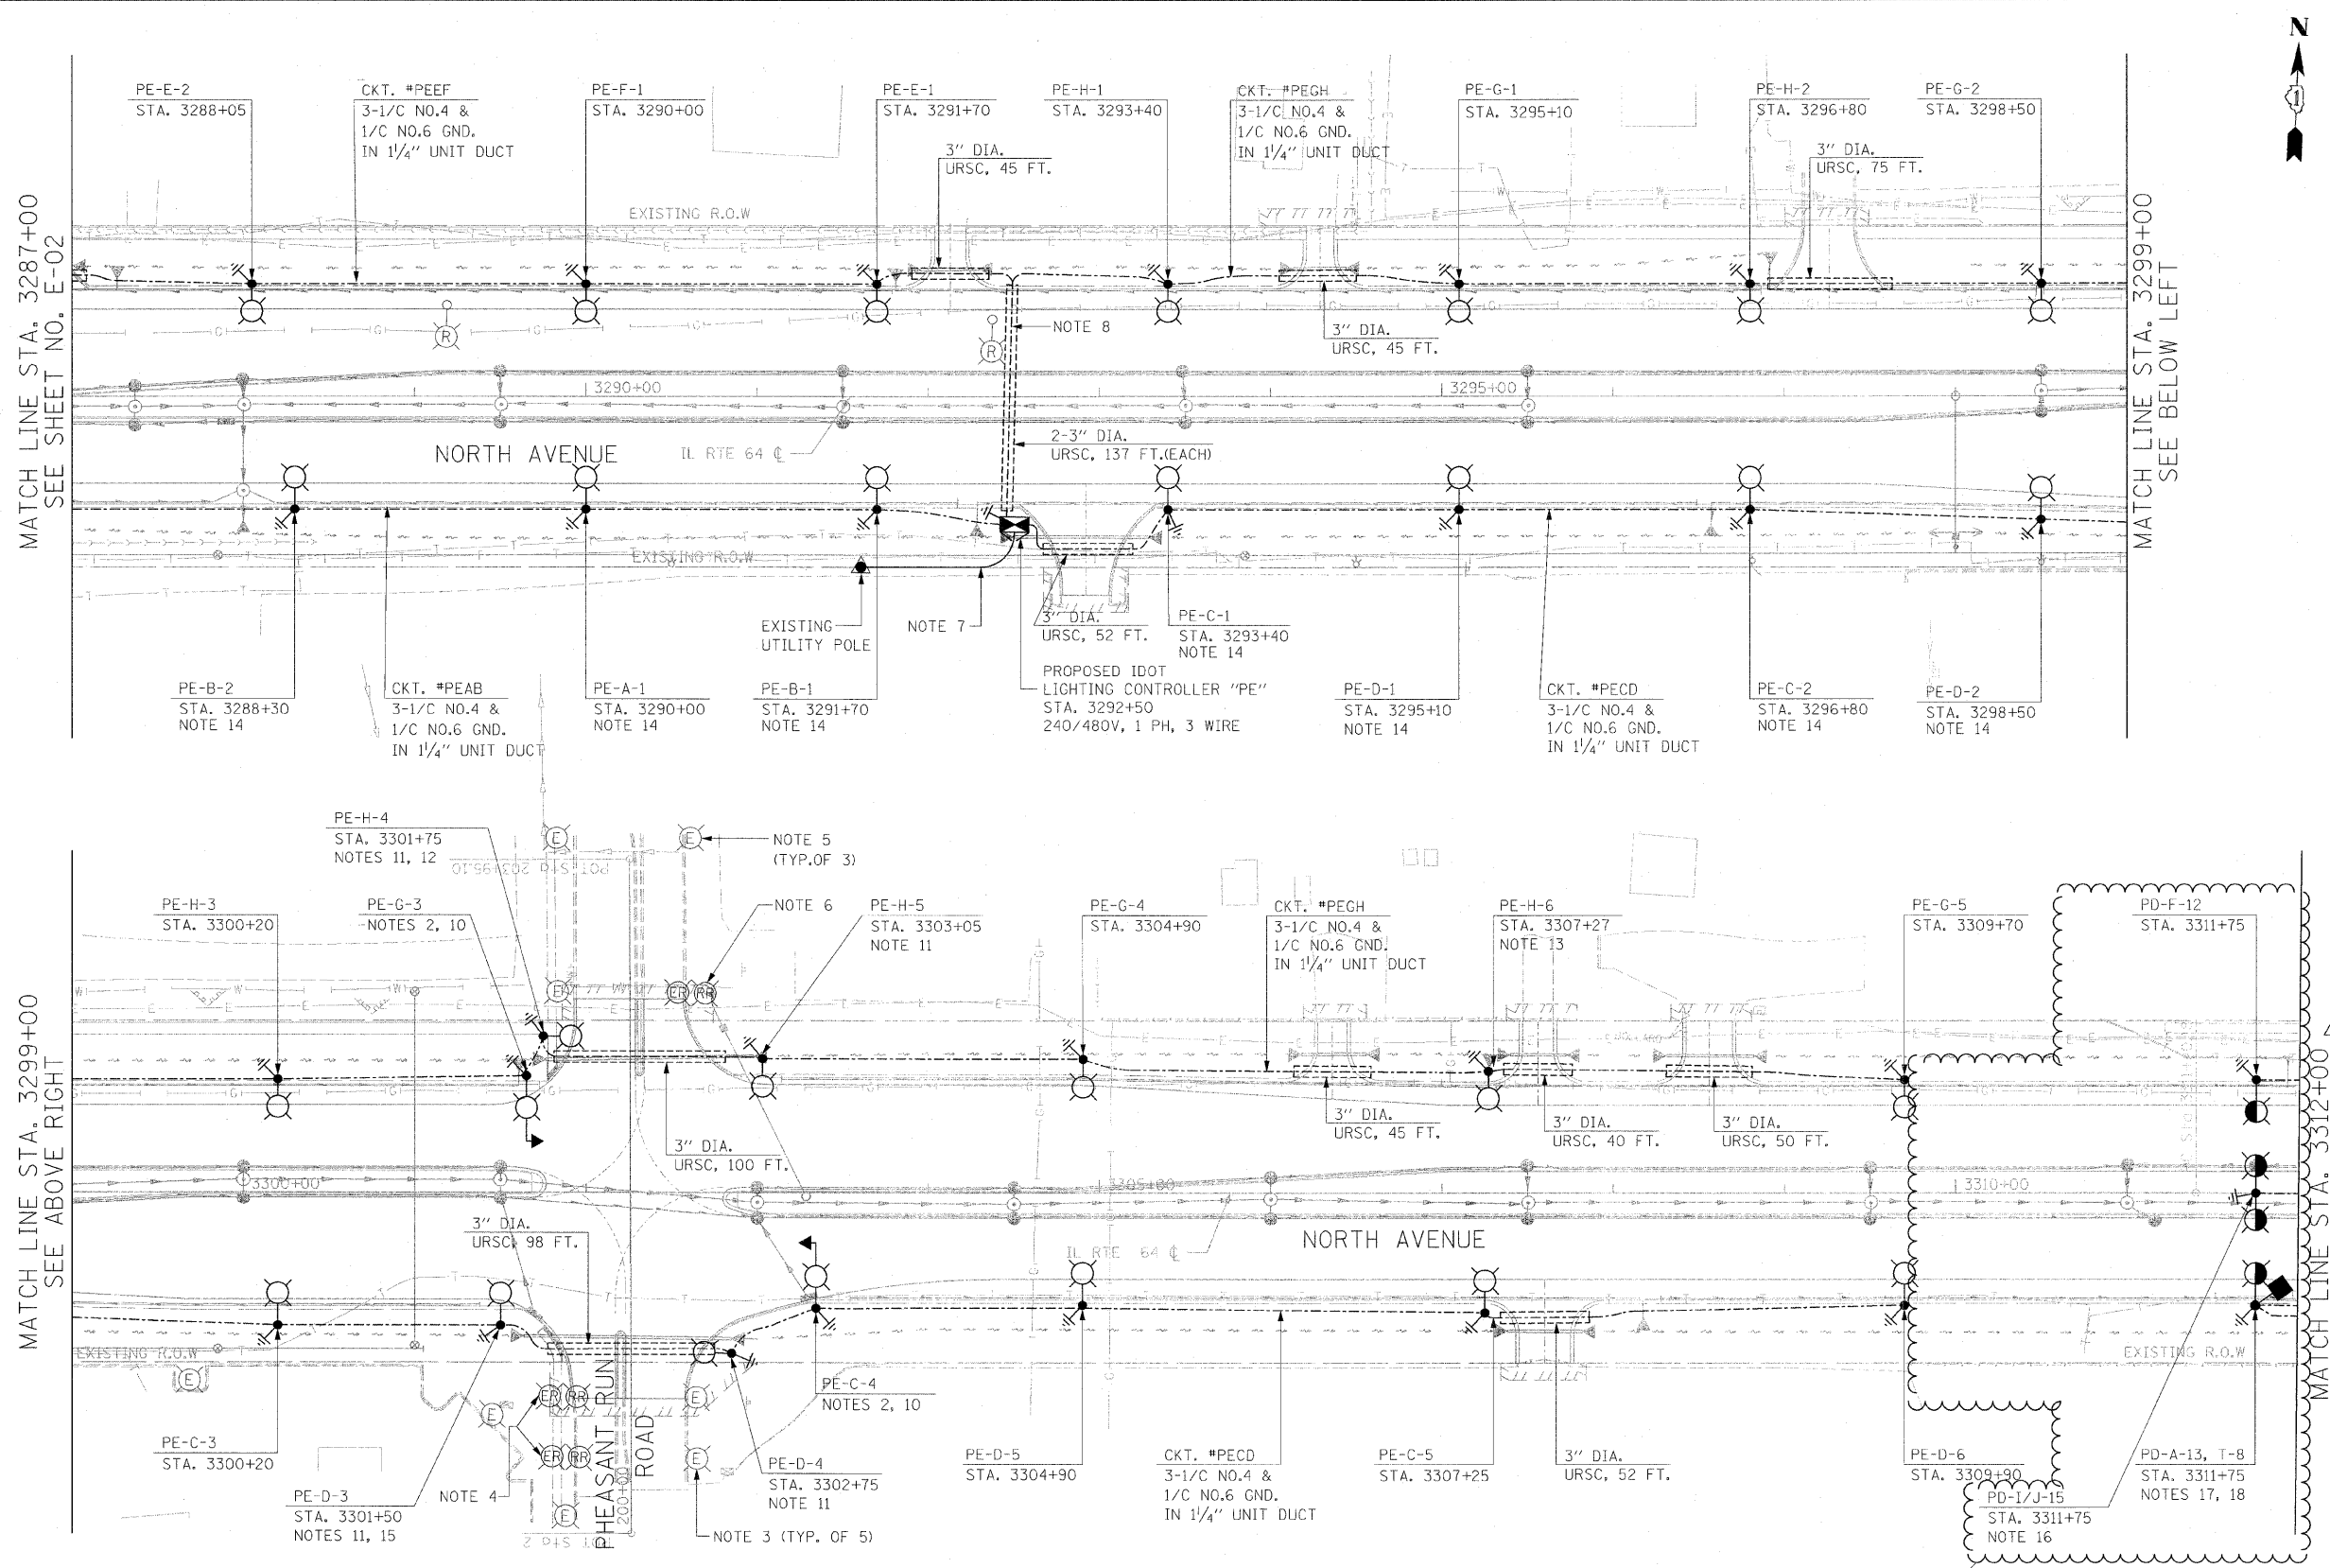 N
PE-E-2
STA. 3288+05
CKT. #PEEF
3-1/C NO.4 &
1/C NO.6 GND.
IN 1 1/4" UNIT DUCT
PE-F-1
STA. 3290+00
PE-E-1
STA. 3291+70
PE-H-1
STA. 3293+40
CKT. #PEGH
3-1/C NO.4 &
1/C NO.6 GND.
IN 1 1/4" UNIT DUCT
PE-G-1
STA. 3295+10
PE-H-2
STA. 3296+80
PE-G-2
STA. 3298+50
3" DIA.
URSC, 45 FT.
3" DIA.
URSC, 75 FT.
EXISTING R.O.W
MATCH LINE STA. 3287+00
SEE SHEET NO. E-02
MATCH LINE STA. 3299+00
SEE BELOW LEFT
R
R
NOTE 8
3" DIA.
URSC, 45 FT.
3290+00
3295+00
NORTH AVENUE
IL RTE 64 ℄
2-3" DIA.
URSC, 137 FT.(EACH)
EXISTING R.O.W
EXISTING
UTILITY POLE
NOTE 7
3" DIA.
URSC, 52 FT.
PE-C-1
STA. 3293+40
NOTE 14
PROPOSED IDOT
LIGHTING CONTROLLER "PE"
STA. 3292+50
240/480V, 1 PH, 3 WIRE
PE-B-2
STA. 3288+30
NOTE 14
CKT. #PEAB
3-1/C NO.4 &
1/C NO.6 GND.
IN 1 1/4" UNIT DUCT
PE-A-1
STA. 3290+00
NOTE 14
PE-B-1
STA. 3291+70
NOTE 14
PE-D-1
STA. 3295+10
NOTE 14
CKT. #PECD
3-1/C NO.4 &
1/C NO.6 GND.
IN 1 1/4" UNIT DUCT
PE-C-2
STA. 3296+80
NOTE 14
PE-D-2
STA. 3298+50
NOTE 14
PE-H-4
STA. 3301+75
NOTES 11, 12
E
E
NOTE 5
(TYP.OF 3)
PE-H-3
STA. 3300+20
PE-G-3
NOTES 2, 10
NOTE 6
PE-H-5
STA. 3303+05
NOTE 11
PE-G-4
STA. 3304+90
CKT. #PEGH
3-1/C NO.4 &
1/C NO.6 GND.
IN 1 1/4" UNIT DUCT
PE-H-6
STA. 3307+27
NOTE 13
PE-G-5
STA. 3309+70
PD-F-12
STA. 3311+75
MATCH LINE STA. 3299+00
SEE ABOVE RIGHT
MATCH LINE STA. 3312+00
E
ER
RR
3" DIA.
URSC, 100 FT.
3" DIA.
URSC, 45 FT.
3" DIA.
URSC, 40 FT.
3" DIA.
URSC, 50 FT.
3300+00
3305+00
3310+00
3" DIA.
URSC, 98 FT.
IL RTE 64 ℄
NORTH AVENUE
EXISTING R.O.W
EXISTING R.O.W
E
E
ER
RR
E
ER
RR
E
E
PHEASANT RUN
ROAD
200+00
PE-C-3
STA. 3300+20
PE-D-3
STA. 3301+50
NOTES 11, 15
NOTE 4
PE-C-4
NOTES 2, 10
PE-D-4
STA. 3302+75
NOTE 11
NOTE 3 (TYP. OF 5)
PE-D-5
STA. 3304+90
CKT. #PECD
3-1/C NO.4 &
1/C NO.6 GND.
IN 1 1/4" UNIT DUCT
PE-C-5
STA. 3307+25
3" DIA.
URSC, 52 FT.
PE-D-6
STA. 3309+90
PD-I/J-15
STA. 3311+75
NOTE 16
PD-A-13, T-8
STA. 3311+75
NOTES 17, 18